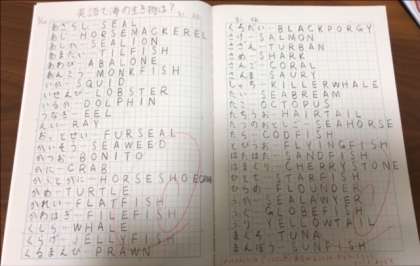 英語で海の生き物は?
あざらし… SEAL
あじ… HORSEMACKEREL
あしか… SEALION
あめふらし… TIMTAM
あわび… ABALONE
あんこう… MONKFISH
いか… SQUID
いせえび… LOBSTER
いるか… DOLPHIN
うなぎ… EEL
えい… RAY
おっとせい… FURSEAL
かいそう… SEAWEED
かつお… BONITO
かに… CRAB
HORSESHOECRAB
かめ… TURTLE
かれい… FLATFISH
かわはぎ… FILEFISH
くじら… WHALE
くらげ… JELLYFISH
くるまえび… PRAWN
くろだい… BLACKPORGY
さけ… SALMON
さざえ… TURBAN
さめ… SHARK
さんご… CORAL
さんま… SAURY
しゃち… KILLERWHALE
たい… SEABREAM
たこ… OCTOPUS
たちうお… HAIRTAIL
たつのおとしご… SEAHORSE
たら… CODFISH
とびうお… FLYINGFISH
はたはた… SANDFISH
CHERRYSTONE
ひとで… STARFISH
ひらめ… FLOUNDER
SEALAWYER
ふぐ… GLOBEFISH
ぶり… YELLOWTAIL
まぐろ… TUNA
まんぼう… SUNFISH